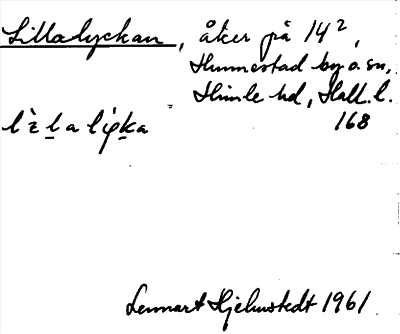 Lillalyckan, åker på 14²,
Hunnestad by o. sn,
Himle hd, Hall. l.
168
Lennart Hjelmstedt 1961